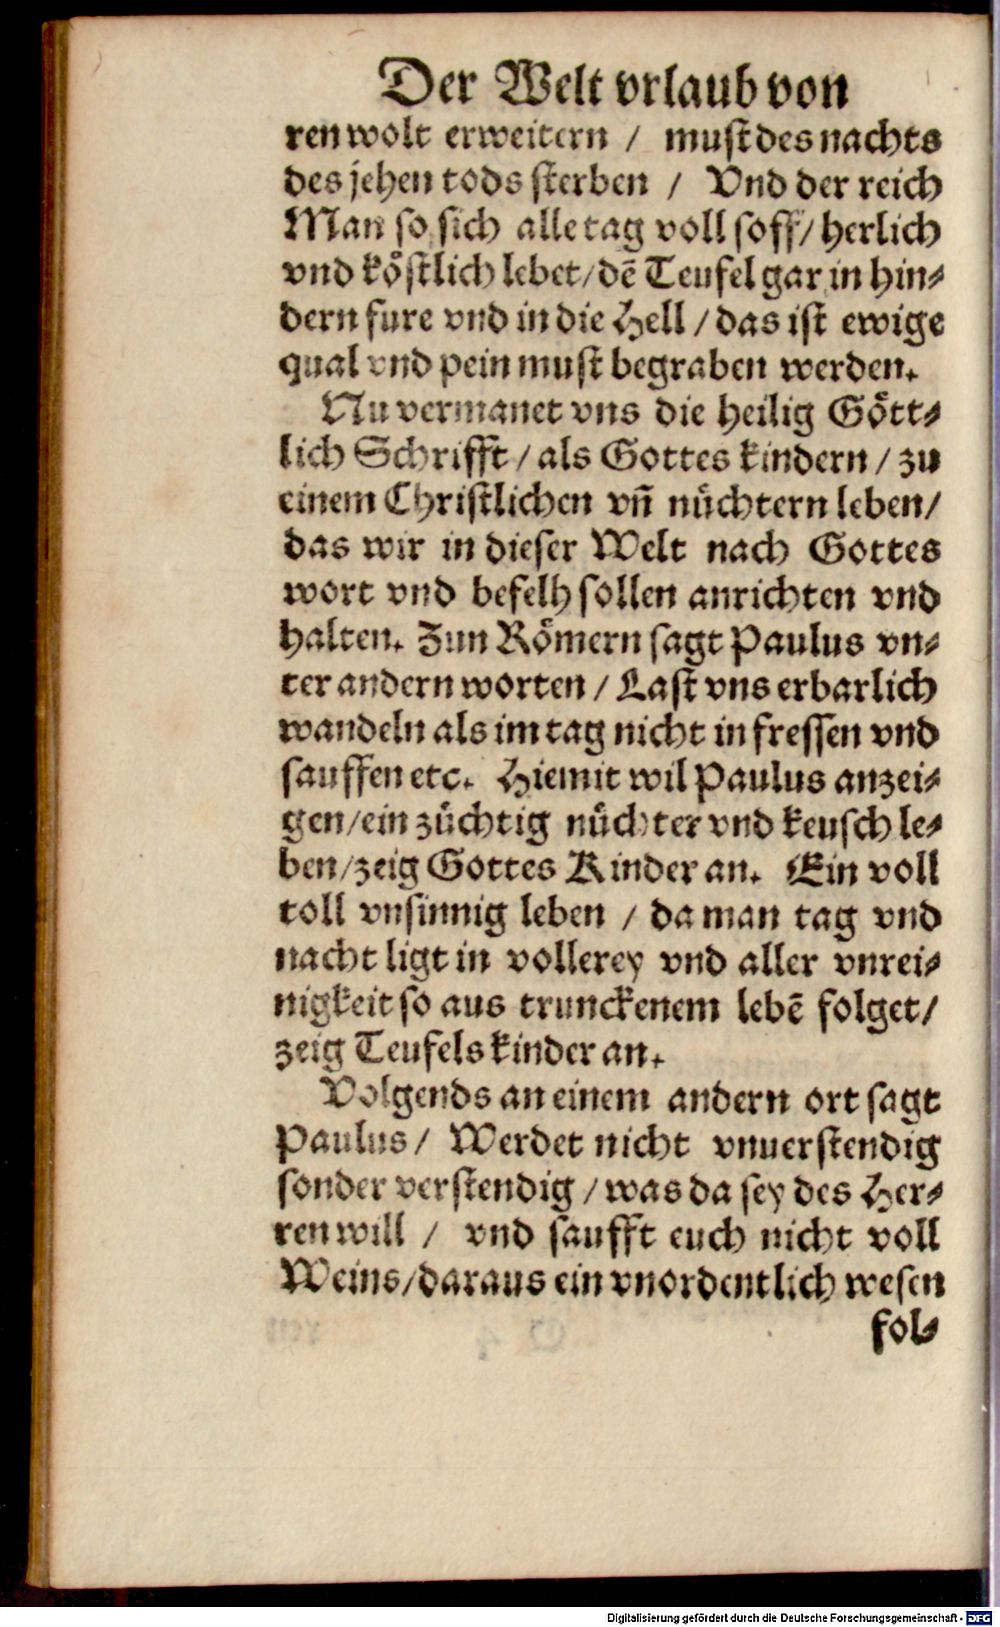 Der Welt vrlaub von
ren wolt erweitern / must des nachts
des jehen tods sterben / Vnd der reich
Man so sich alle tag voll soff / herlich
vnd köstlich lebet / dē Teufel gar in hin-
dern fure vnd in die Hell / das ist ewige
qual vnd pein must begraben werden.
Nu vermanet vns die heilig Gött-
lich Schrifft / als Gottes kindern / zu
einem Christlichen vñ nüchtern leben /
das wir in dieser Welt nach Gottes
wort vnd befelh sollen anrichten vnd
halten. Zun Römern sagt Paulus vn-
ter andern worten / Last vns erbarlich
wandeln als im tag nicht in fressen vnd
sauffen etc. Hiemit wil Paulus anzei-
gen / ein züchtig nüchter vnd keusch le-
ben / zeig Gottes Kinder an. Ein voll
toll vnsinnig leben / da man tag vnd
nacht ligt in vollerey vnd aller vnrei-
nigkeit so aus trunckenem lebē folget /
zeig Teufels kinder an.
Volgends an einem andern ort sagt
Paulus / Werdet nicht vnuerstendig
sonder verstendig / was da sey des Her-
ren will / vnd saufft euch nicht voll
Weins / daraus ein vnordentlich wesen
fol-
Digitalisierung gefördert durch die Deutsche Forschungsgemeinschaft - DFG